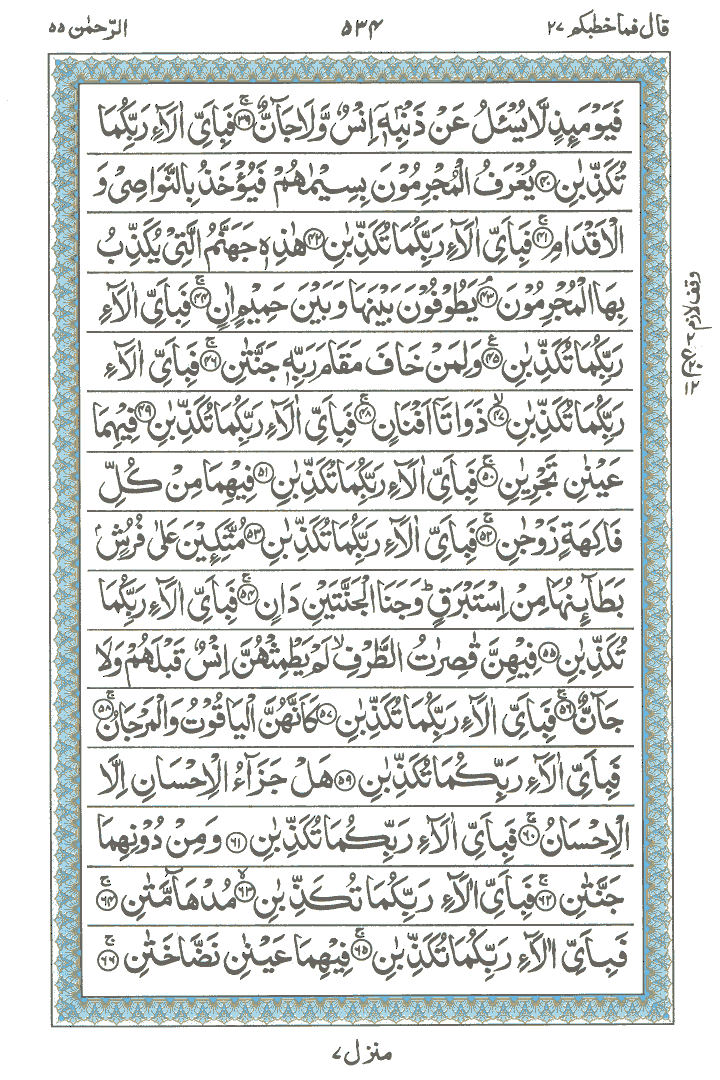 قال فما خطبكم ۲۷
۵۳۴
الرّحمٰن ۵۵
فَيَوْمَىِٕذٍ لَّا يُسْـَٔلُ عَنْ ذَنْۢبِهٖۤ اِنْسٌ وَّلَا جَآنٌّ ۚ‏﴿۳۹﴾ فَبِاَىِّ اٰلَآءِ رَبِّكُمَا
تُكَذِّبٰنِ ﴿۴۰﴾ يُعْرَفُ الْمُجْرِمُوْنَ بِسِيْمٰهُمْ فَيُؤْخَذُ بِالنَّوَاصِىْ وَ
الْاَقْدَامِ ۚ﴿۴۱﴾ فَبِاَىِّ اٰلَآءِ رَبِّكُمَا تُكَذِّبٰنِ ﴿۴۲﴾ هٰذِهٖ جَهَنَّمُ الَّتِىْ يُكَذِّبُ
بِهَا الْمُجْرِمُوْنَ ۘ﴿۴۳﴾ يَطُوْفُوْنَ بَيْنَهَا وَبَيْنَ حَمِيْمٍ اٰنٍ ۚ﴿۴۴﴾ فَبِاَىِّ اٰلَآءِ
رَبِّكُمَا تُكَذِّبٰنِ ﴿۴۵﴾ وَلِمَنْ خَافَ مَقَامَ رَبِّهٖ جَنَّتٰنِ ۚ﴿۴۶﴾ فَبِاَىِّ اٰلَآءِ
رَبِّكُمَا تُكَذِّبٰنِ ۙ﴿۴۷﴾ ذَوَاتَاۤ اَفْنَانٍ ۚ﴿۴۸﴾ فَبِاَىِّ اٰلَآءِ رَبِّكُمَا تُكَذِّبٰنِ ﴿۴۹﴾ فِيْهِمَا
عَيْنٰنِ تَجْرِيٰنِ ۚ﴿۵۰﴾ فَبِاَىِّ اٰلَآءِ رَبِّكُمَا تُكَذِّبٰنِ ﴿۵۱﴾ فِيْهِمَا مِنْ كُلِّ
فَاكِهَةٍ زَوْجٰنِ ۚ﴿۵۲﴾ فَبِاَىِّ اٰلَآءِ رَبِّكُمَا تُكَذِّبٰنِ ﴿۵۳﴾ مُتَّكِـِٕيْنَ عَلٰى فُرُشٍۭ
بَطَآىِٕنُهَا مِنْ اِسْتَبْرَقٍ ؕ وَجَنَا الْجَنَّتَيْنِ دَانٍ ۚ﴿۵۴﴾ فَبِاَىِّ اٰلَآءِ رَبِّكُمَا
تُكَذِّبٰنِ ﴿۵۵﴾ فِيْهِنَّ قٰصِرٰتُ الطَّرْفِ ۙ لَمْ يَطْمِثْهُنَّ اِنْسٌ قَبْلَهُمْ وَلَا
جَآنٌّ ۚ﴿۵۶﴾ فَبِاَىِّ اٰلَآءِ رَبِّكُمَا تُكَذِّبٰنِ ﴿۵۷﴾ كَاَنَّهُنَّ الْيَاقُوْتُ وَالْمَرْجَانُ ۚ﴿۵۸﴾
فَبِاَىِّ اٰلَآءِ رَبِّكُمَا تُكَذِّبٰنِ ﴿۵۹﴾ هَلْ جَزَآءُ الْاِحْسَانِ اِلَّا
الْاِحْسَانُ ۚ﴿۶۰﴾ فَبِاَىِّ اٰلَآءِ رَبِّكُمَا تُكَذِّبٰنِ ﴿۶۱﴾ وَمِنْ دُوْنِهِمَا
جَنَّتٰنِ ۚ﴿۶۲﴾ فَبِاَىِّ اٰلَآءِ رَبِّكُمَا تُكَذِّبٰنِ ۙ﴿۶۳﴾ مُدْهَآمَّتٰنِ ۚ﴿۶۴﴾
فَبِاَىِّ اٰلَآءِ رَبِّكُمَا تُكَذِّبٰنِ ۚ﴿۶۵﴾ فِيْهِمَا عَيْنٰنِ نَضَّاخَتٰنِ ۚ﴿۶۶﴾
وقف لازم
منزل ۷